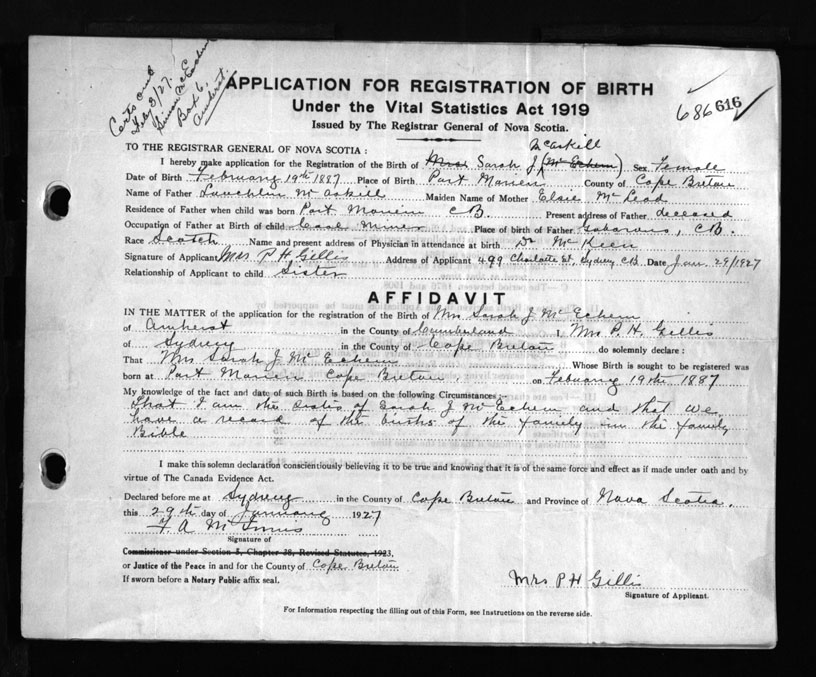 Certs and
Feb 3/27.
Box 6,
Amherst.
APPLICATION FOR REGISTRATION OF BIRTH
Under the Vital Statistics Act 1919
Issued by The Registrar General of Nova Scotia.
686 616
TO THE REGISTRAR GENERAL OF NOVA SCOTIA:
McAskill
I hereby make application for the Registration of the Birth of Mrs Sarah J (McEchern) Sex Female
Date of Birth February 19th 1887 Place of Birth Port Morien County of Cape Breton
Name of Father Lauchlin McAskill Maiden Name of Mother Elsie McLeod
Residence of Father when child was born Port Morien C.B. Present address of Father deceased
Occupation of Father at Birth of child Coal Miner Place of birth of Father Gabarous, C.B.
Race Scotch Name and present address of Physician in attendance at birth Dr McKeen
Signature of Applicant Mrs P H Gillis Address of Applicant 499 Charlotte St, Sydney CB Date Jan. 29/1927
Relationship of Applicant to child Sister
AFFIDAVIT
IN THE MATTER of the application for the registration of the Birth of Mrs Sarah J McEchern
of Amherst in the County of Cumberland I, Mrs P. H. Gillis
of Sydney in the County of Cape Breton do solemnly declare:
That Mrs Sarah J McEchern Whose Birth is sought to be registered was
born at Port Morien Cape Breton. on February 19th 1887
My knowledge of the fact and date of such Birth is based on the following Circumstances:-
That I am the sister of Sarah J McEchern and that we
have a record of the births of the family in the family
Bible
I make this solemn declaration conscientiously believing it to be true and knowing that it is of the same force and effect as if made under oath and by
virtue of The Canada Evidence Act.
Declared before me at Sydney in the County of Cape Breton and Province of Nova Scotia.
this 29th day of January 1927
F A McInnis
Signature of
Commissioner under Section 5, Chapter 38, Revised Statutes, 1923,
or Justice of the Peace in and for the County of Cape Breton
If sworn before a Notary Public affix seal.
Mrs P H Gillis
Signature of Applicant.
For Information respecting the filling out of this Form, see Instructions on the reverse side.